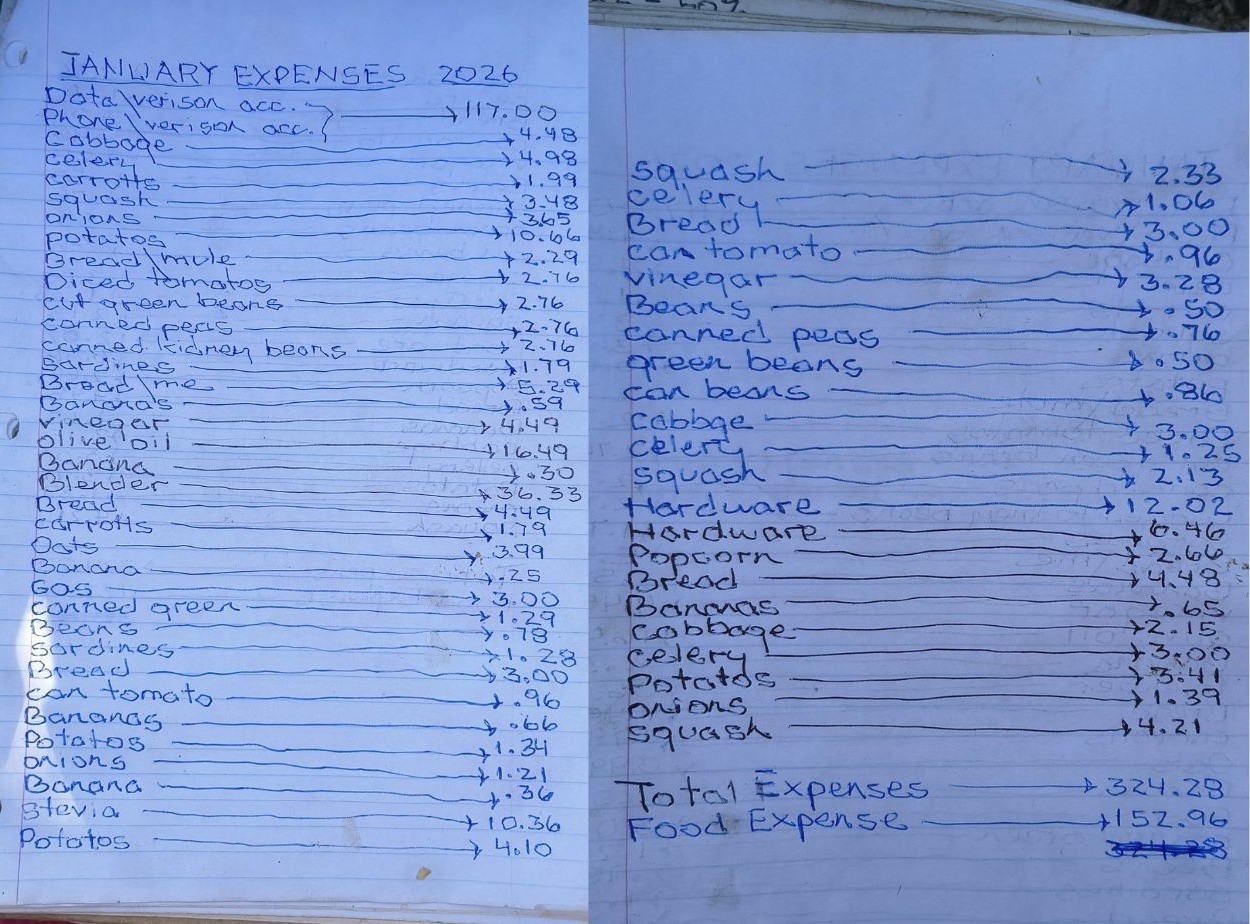 JANUARY EXPENSES 2026
Data\verison acc.
Phone\verison acc. 117.00
Cabbage 4.48
celery 4.98
carrotts 1.99
squash 3.48
onions 3.65
potatos 10.66
Bread\mule 2.29
Diced tomatos 2.76
cut green beans 2.76
canned peas 2.76
canned kidney beans 2.76
sardines 1.79
Bread\me 5.29
Bananas .59
vinegar 4.49
olive oil 16.49
Banana .30
Blender 36.33
Bread 4.49
carrotts 1.79
Oats 3.99
Banana .25
Gas 3.00
canned green 1.29
Beans .78
sardines 1.28
Bread 3.00
can tomato .96
Bananas .66
Potatos 1.34
onions 1.21
Banana .36
stevia 10.36
Potatos 4.10
squash 2.33
celery 1.06
Bread 3.00
can tomato .96
vinegar 3.28
Beans .50
canned peas .76
green beans .50
can beans .86
cabbge 3.00
celery 1.25
squash 2.13
Hardware 12.02
Hardware 6.46
Popcorn 2.66
Bread 4.48
Bananas .65
cabbage 2.15
celery 3.00
Potatos 3.41
onions 1.39
squash 4.21
Total Expenses 324.28
Food Expense 152.96